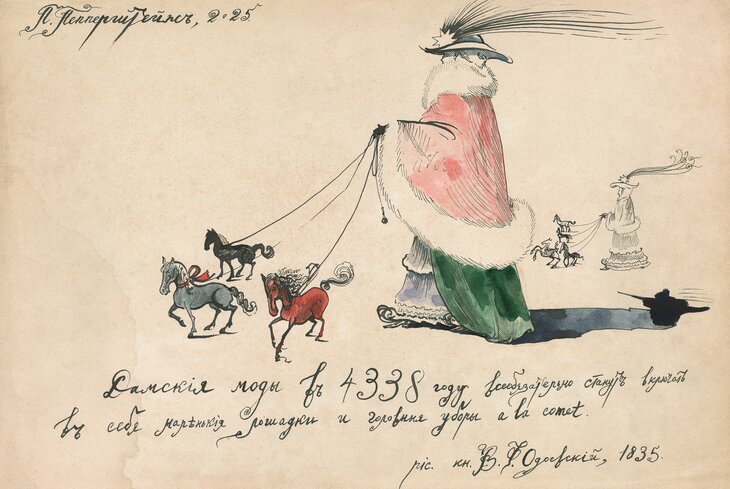 П. Пепперштейнъ, 2025
Дамскія моды въ 4338 году всеобязательно станутъ включать
въ себе маленькія лошадки и головния уборы a la comet.
ріс. кн. В. Ѳ. Одоевскій, 1835.